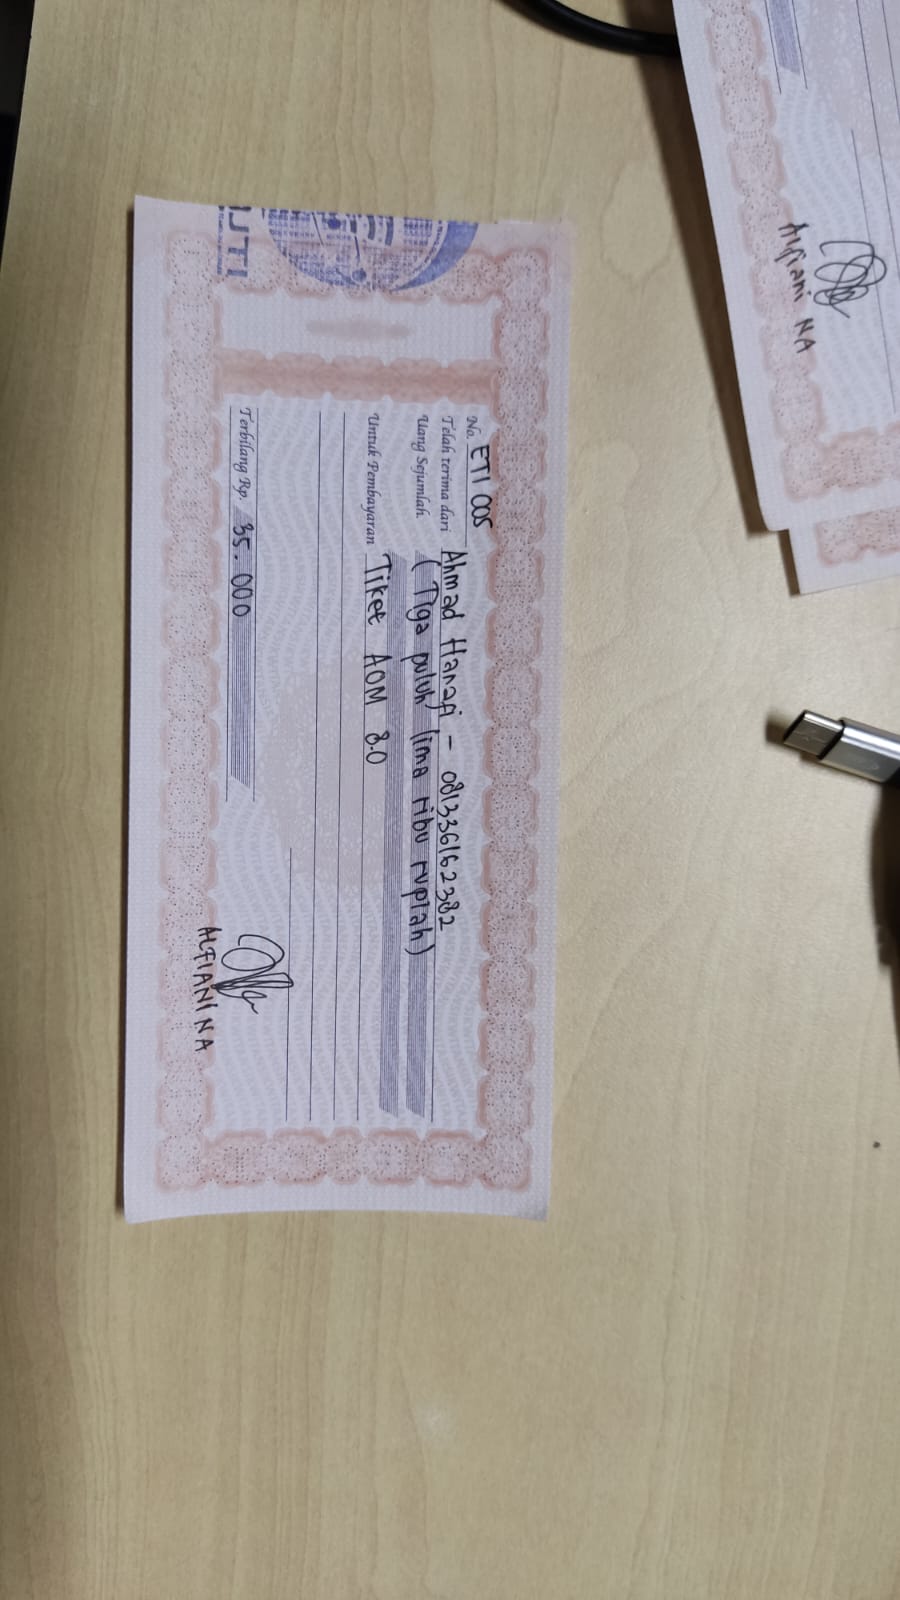 No. ETI 005
Telah terima dari Ahmad Hanafi - 081336162382
Uang Sejumlah (Tiga puluh lima ribu rupiah)
Untuk Pembayaran Tiket AOM 8.0
Terbilang Rp. 35.000
ALFIANI NA
Alfiani NA